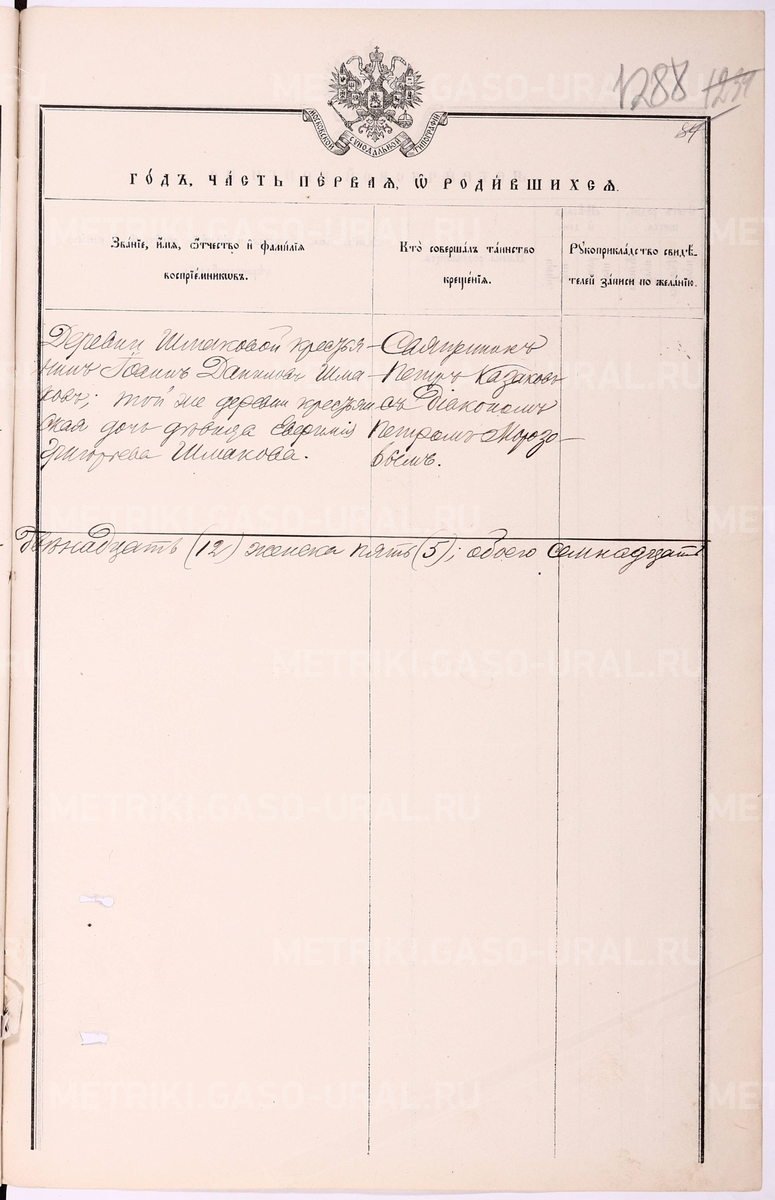 1288 1251
84
МОСКОВСКОЙ СѴНОДАЛЬНОЙ ТИПОГРАФІИ
ГО́ДЪ, ЧА́СТЬ ПЕ́РВАЯ, Ѡ҆ РОДИ́ВШИХСЯ.
Зва́нїе, и҆́мя, ѻ҆́тчество и҆ фами́лїя
воспрїе́мниковъ.
Кто̀ соверша́лъ та́инство
креще́нїя.
Рꙋкоприкла́дство свидѣ́-
телей за́писи по жела́нїю.
Деревни Шмаковой крестья-
нинъ Іоаннъ Даниловъ Шма-
ковъ; той же деревни крестьян
ская дочь дѣвица Евфимія
Григорьева Шмакова.
Священникъ
Петръ Казаковъ
съ Діакономъ
Петромъ Морозо-
вымъ.
Двѣнадцать (12) женска пять (5); обоего семнадцать
METRIKI.GASO-URAL.RU